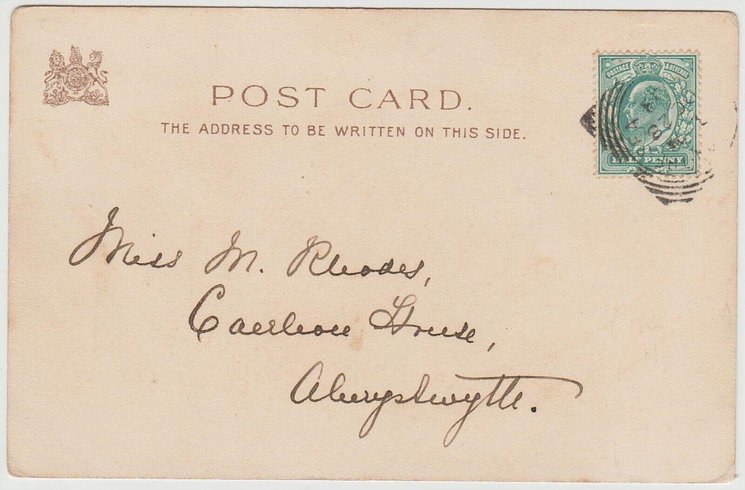 POST CARD.
THE ADDRESS TO BE WRITTEN ON THIS SIDE.
POSTAGE & REVENUE
HALF PENNY
Miss M. Rhodes,
Caerleon House,
Aberystwyth.